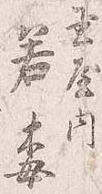 玉屋内
若梅